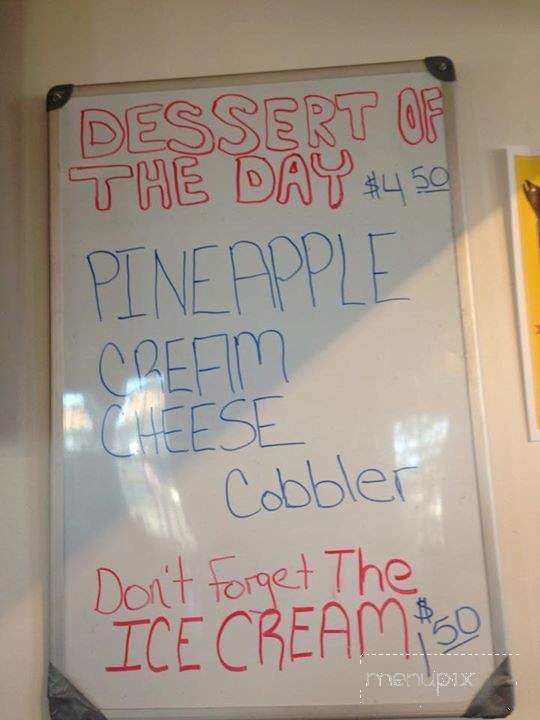 DESSERT OF
THE DAY $4 50
PINEAPPLE
CREAM
CHEESE
Cobbler
Don't forget The
ICE CREAM $1 50
menupix